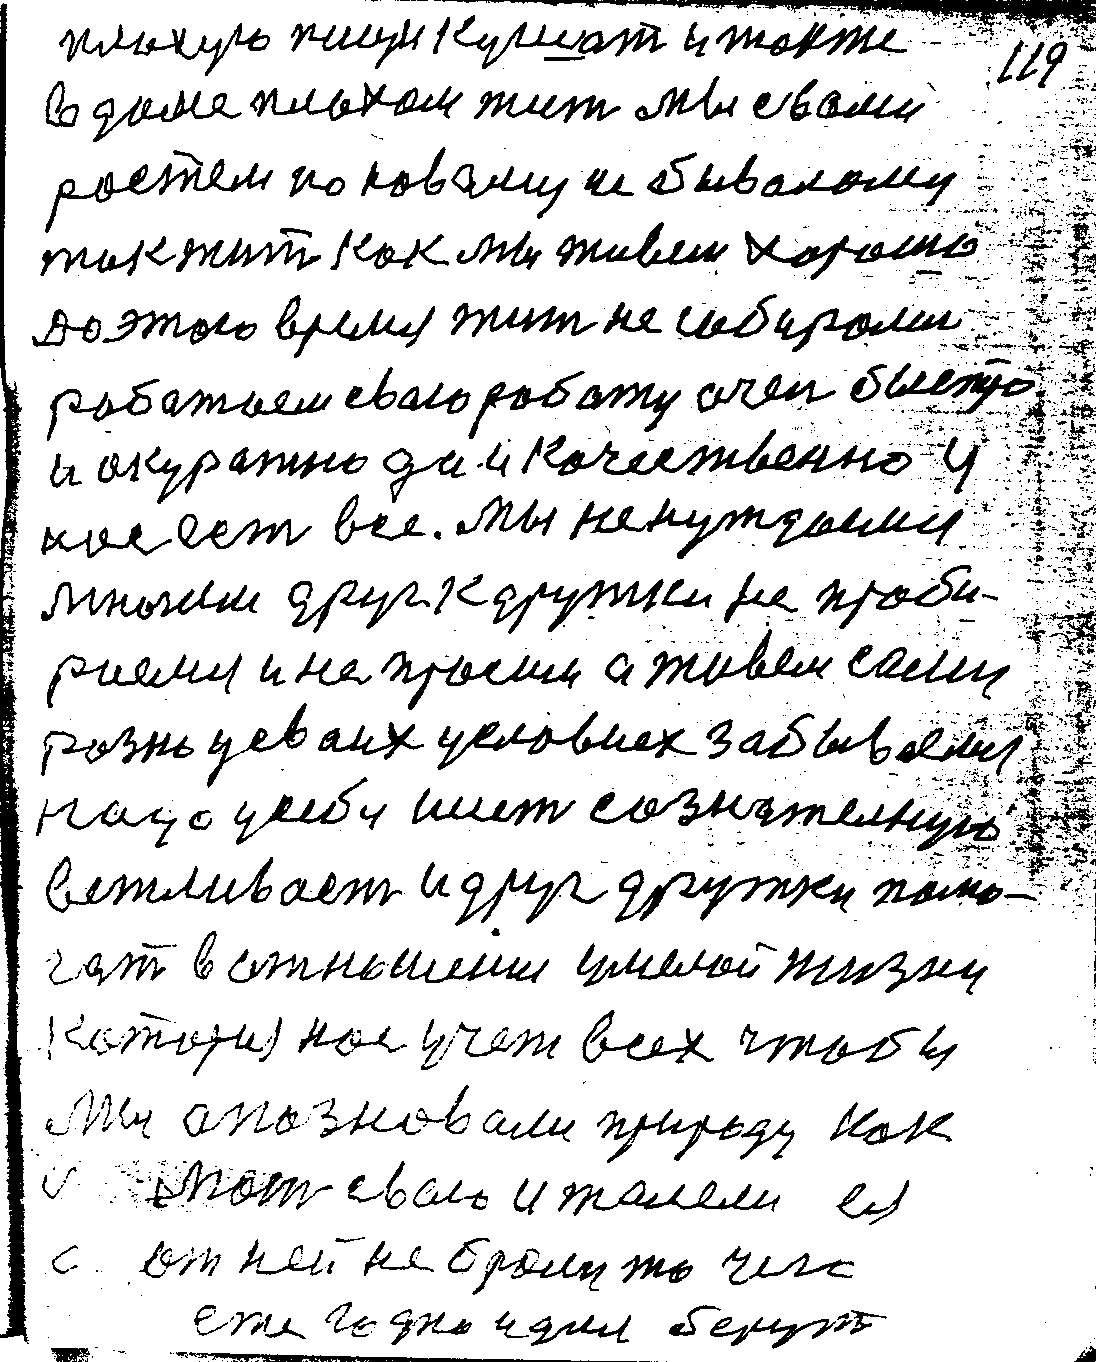 плохую пищу кушат и также
119
в доме плохом жит мы свами
ростем по новаму не бывалому
так жит как мы живем хорошо
до этого время жит не собирали
работаем сваю работу очен быстро
и окуратно да и качественно у
нас ест все. Мы не нуждаеми
мноием друг к дружки не проби-
раеми и не просим а живем сами
разно усваих условиех забываеми
надо усеби имет сознателную
вежливаст и друг дружки памо-
гат в отношении умелой жизни
катория нас учет всех чтобы
мы апазновали природу как
мат сваю и жалели ея
от ней не брали то чего
ежегодно идля берут